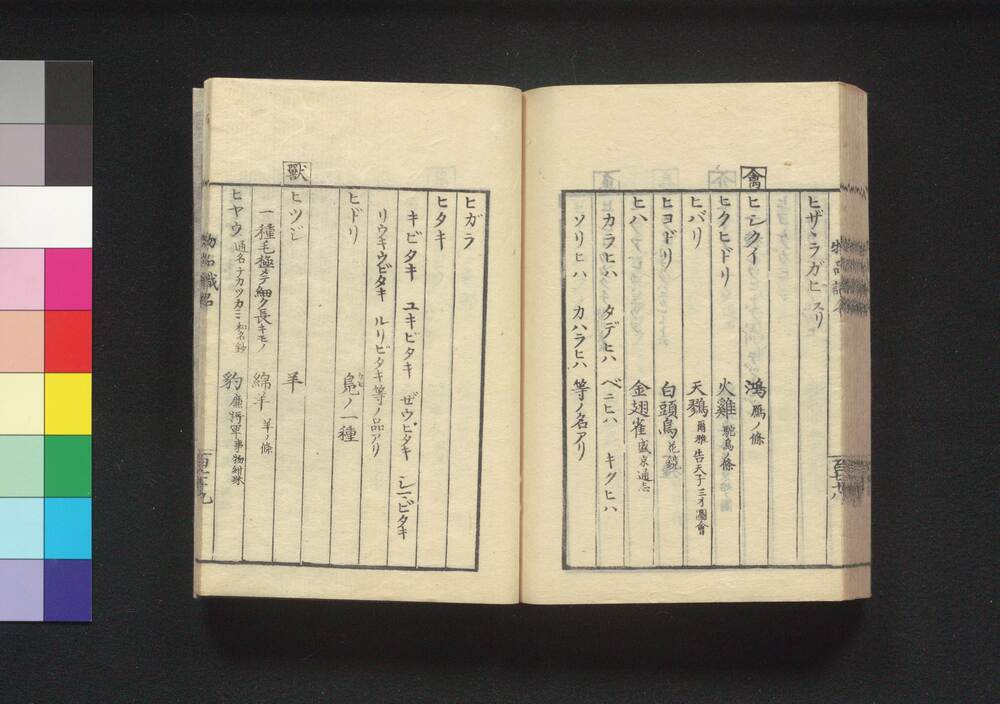 ヒザラガヒ スリ
禽
ヒシクイ 鴻 鴈ノ條
ヒクヒドリ 火雞 駝鳥ノ條
ヒバリ 天鷚 爾雅 告天子 三才圖會
ヒヨドリ 白頭鳥 花鏡
ヒハ 金翅雀 盛京通志
カラヒハ タデヒハ ベニヒハ キクヒハ
ソリヒハ カハラヒハ 等ノ名アリ
ヒガラ
ヒタキ
キビタキ ユキビタキ ゼウビタキ シマビタキ
リウキウビタキ ルリビタキ等ノ品アリ
ヒドリ 鳧ノ一種
獸
ヒツジ 羊
一種毛極メテ細ク長キモノ 綿羊 羊ノ條
ヒヤウ 通名 ナカツカミ 和名鈔 豹 廉將軍 事物紺珠
物品識名